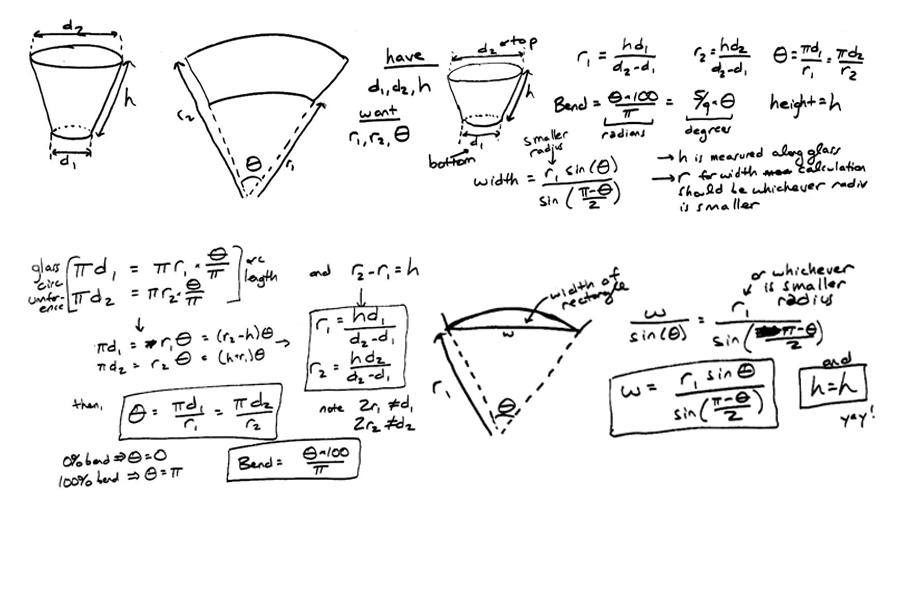 d₂
h
d₁
r₂
θ
r₁
have
d₁, d₂, h
want
r₁, r₂, θ
d₂ ← top
h
d₁
bottom
r₁ = hd₁/(d₂-d₁)
r₂ = hd₂/(d₂-d₁)
θ = πd₁/r₁ = πd₂/r₂
Bend = θ*100/π = 5/9*θ
radians
degrees
height = h
smaller
radius
width = r₁ sin(θ)/sin((π-θ)/2)
→ h is measured along glass
→ r for width calculation
should be whichever radiu
is smaller
glass
circ
umfer-
ence
πd₁ = πr₁·θ/π
πd₂ = πr₂·θ/π
arc
length
πd₁ = r₁θ = (r₂-h)θ →
πd₂ = r₂θ = (h+r₁)θ
then,
θ = πd₁/r₁ = πd₂/r₂
0% bend ⇒ θ=0
100% bend ⇒ θ=π
Bend = θ*100/π
and r₂-r₁=h
r₁ = hd₁/(d₂-d₁)
r₂ = hd₂/(d₂-d₁)
note 2r₁≠d₁
2r₂≠d₂
width of
rectangle
w
r₁
θ
or whichever
is smaller
radius
w/sin(θ) = r₁/sin((π-θ)/2)
w = r₁ sinθ/sin((π-θ)/2)
and
h=h
yay!